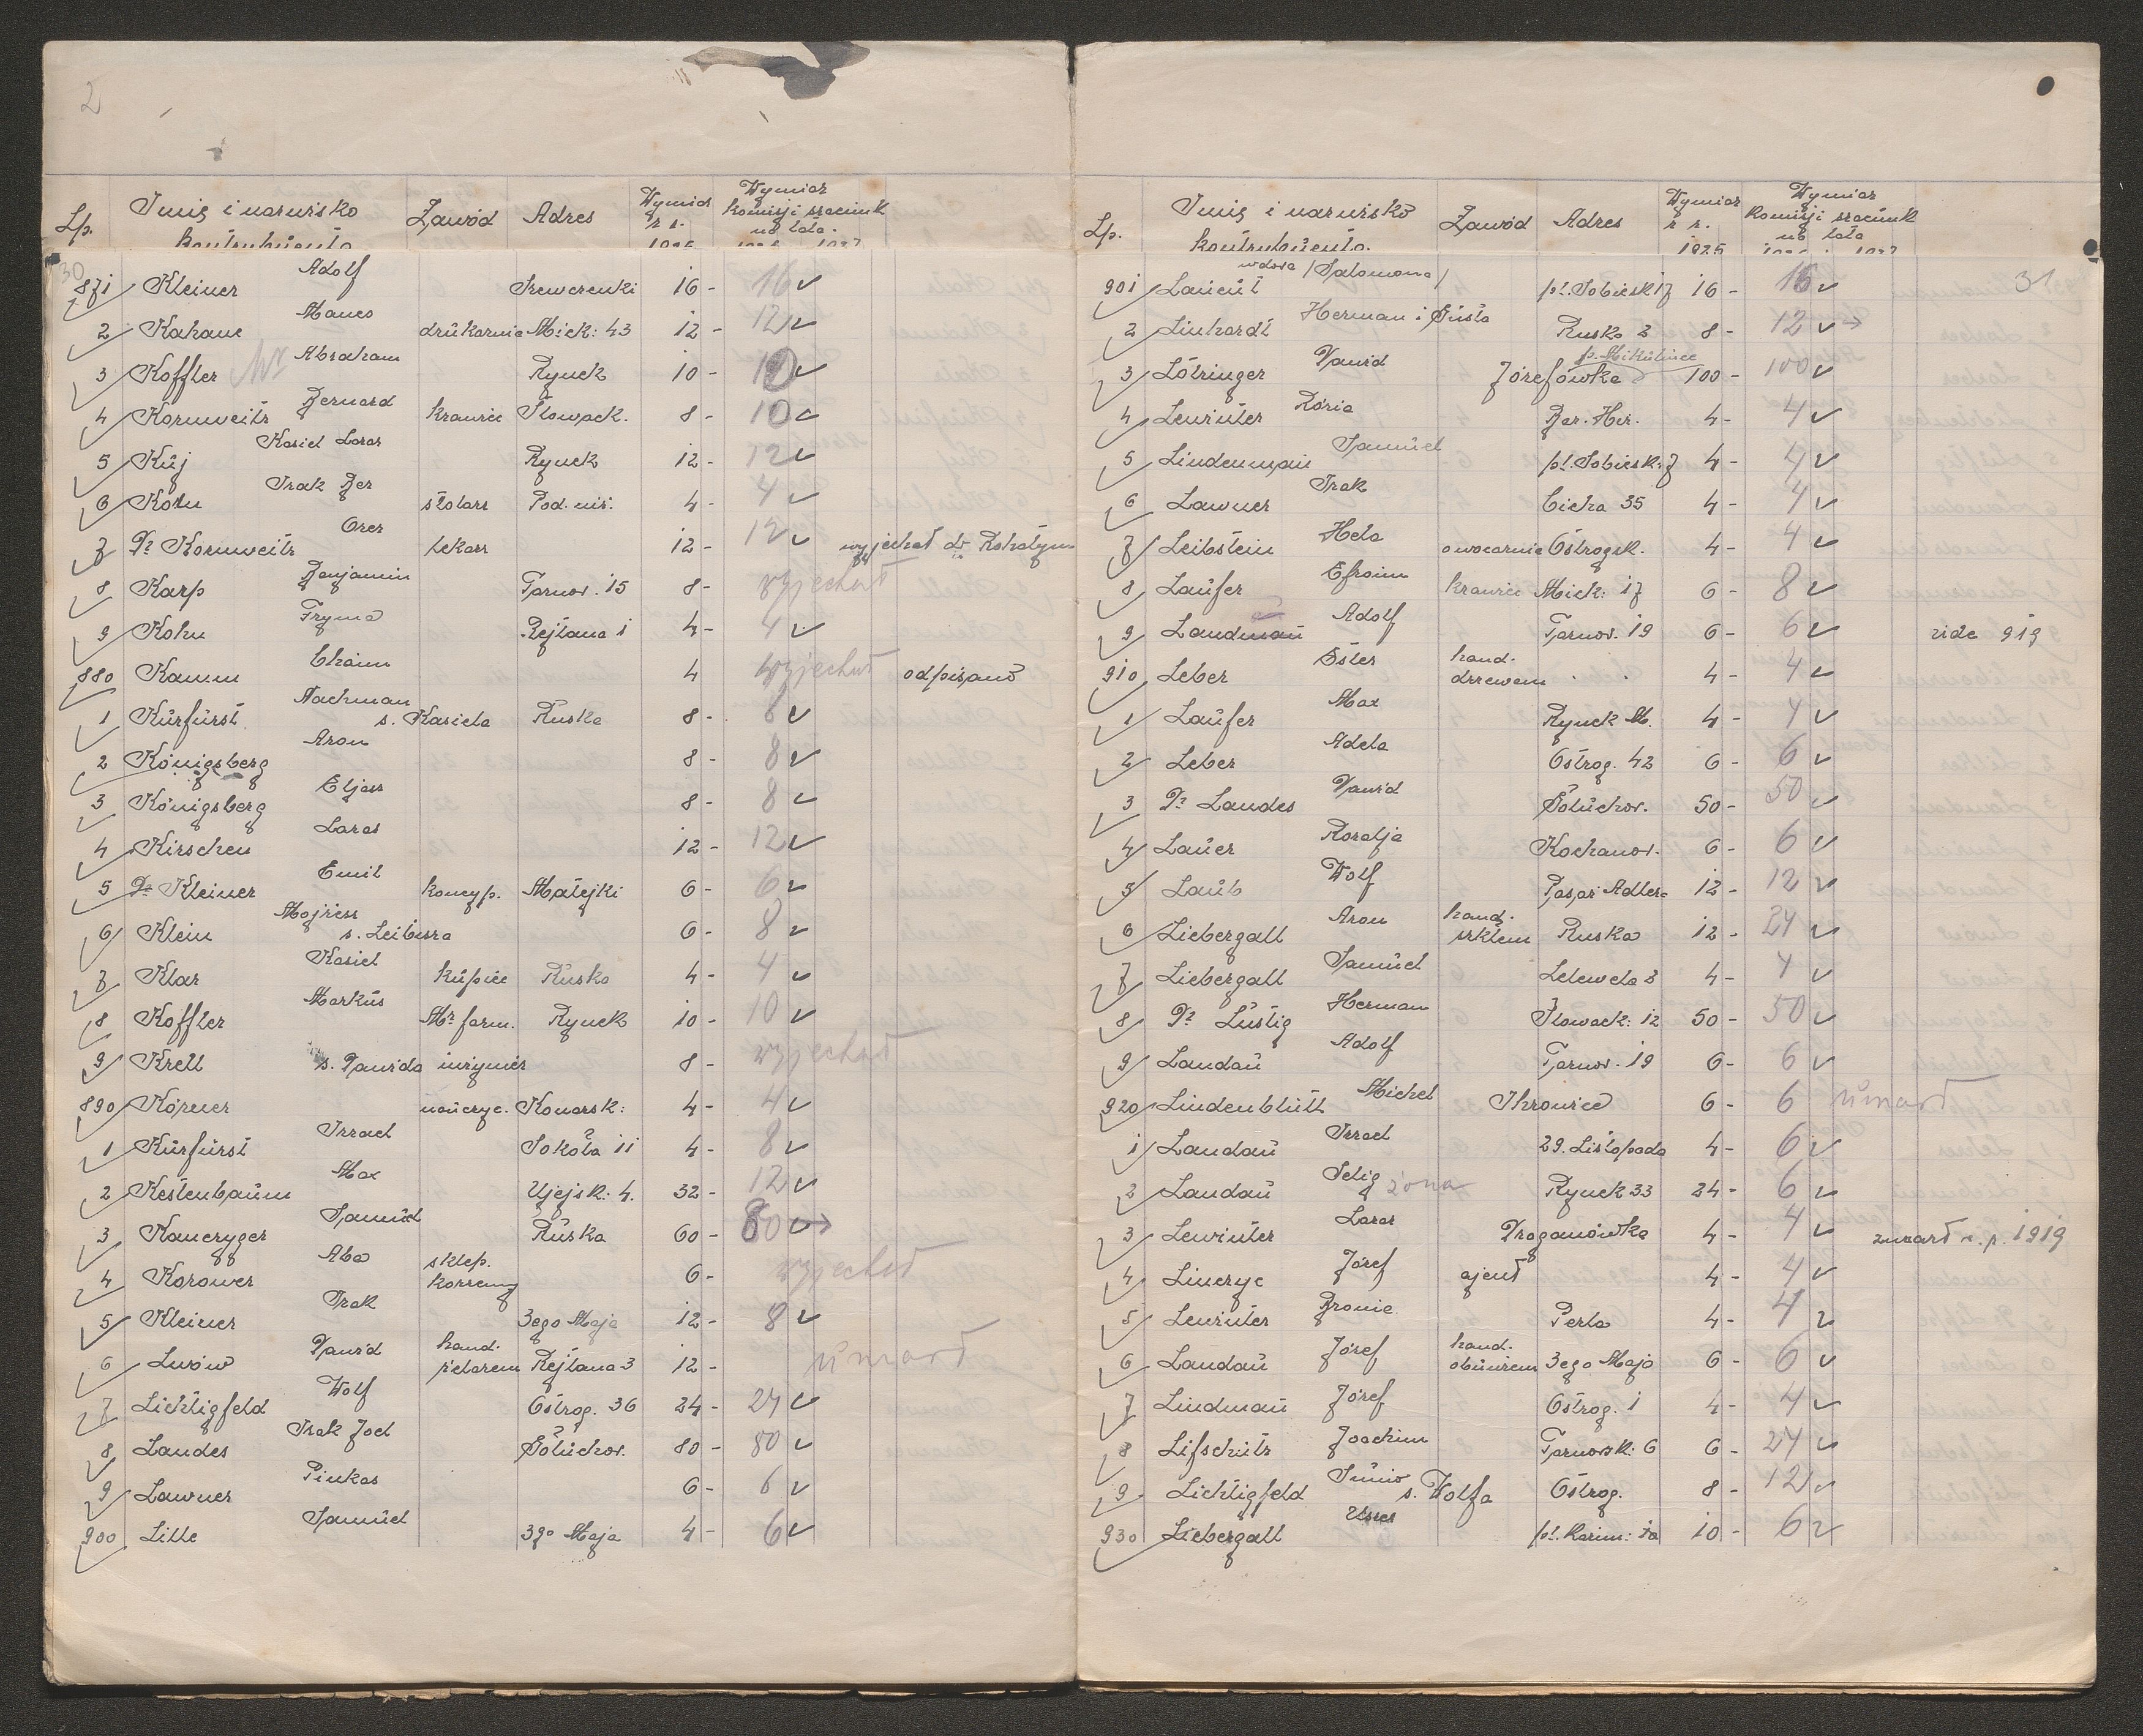 2
Lp. Imię i nazwisko kontrybuenta Zawód Adres Wymiar z r. 1925 Wymiar komisji szacunk na lata
30
871 Kleiner Adolf Szewczenki 16- 16
2 Kahane Manes drukarnia Mick: 43 12- 12
3 Koffler Mr Abraham Rynek 10- 10
4 Kornweitz Bernard krawiec Słowack. 8- 10
5 Kuj Kasiel Lazar Rynek 12- 12
6 Kohn Izak Ber stolarz Pod. 4- 4
7 Dr Kornweitz Ozer lekarz 12- 12 wyjechał do Rohatyna
8 Karp Benjamin Tarnow. 15 8- wyjechał
9 Kohn Fryma Rejtana 1 4- 4
880 Kamm Chaim 4 wyjechał odpisano
1 Kürfürst Nachman s. Kasiela Ruska 8- 8
2 Königsberg Aron 8- 8
3 Königsberg Eljasz 8- 8
4 Kirschen Lazar 12- 12
5 Dr Kleiner Emil koncyp. Matejki 6- 6
6 Klein Mojżesz s. Leibisza 6- 8
7 Klar Kasiel kupiec Ruska 4- 4
8 Koffler Markus Mr farm. Rynek 10- 10
9 Krell s. Dawida inżynier 8- wyjechał
890 Körner nauczyc. Konarsk: 4- 4
1 Kürfürst Izrael Sokoła 11 4- 8
2 Kestenbaum Max Ujejsk: 4. 32- 12
3 Kanczyger Samuel Ruska 60- 80
4 Korower Aba sklep. korzenny 6- wyjechał
5 Kleiner Izak 3ego Maja 12- 8
6 Lwów Dawid hand. żelazem Rejtana 3 12- umarł
7 Lichtigfeld Wolf Ostrog. 36 24- 24
8 Landes Izak Joel Gołuchow. 80- 80
9 Lawner Pinkas 6- 6
900 Lille Samuel 3go Maja 4- 6
Lp. Imię i nazwisko kontrybuenta. Zawód Adres Wymiar z r. 1925 Wymiar komisji szacunk na lata
31
901 Lanient wdowa /Salomona/ pl. Sobiesk 17 16- 16
2 Linhardt Herman i Gusta Ruska 3 8- 12
3 Lotringer Dawid Józefówka p. Mikulińce 100- 100
4 Lewinter Rózia Bar. Hir. 4- 4
5 Lindenman Samuel pl. Sobiesk: 7 4- 4
6 Lawner Izak Cicha 35 4- 4
7 Leibstein Hela owocarnia Ostrogsk. 4- 4
8 Laufer Efroim krawiec Mick: 17 6- 8
9 Landman Adolf Tarnow. 19 6- 6 vide 919
910 Leber Ester hand. drzewem 4- 4
1 Laufer Max Rynek M. 4- 4
2 Leber Adela Ostrog. 42 6- 6
3 Dr Landes Dawid Gołuchow. 50- 50
4 Lauer Rozalja Kochanow. 6- 6
5 Laub Wolf Pasaż Adlera 12- 12
6 Liebergall Aron hand. szkłem Ruska 12- 24
7 Liebergall Samuel Lelewela 3 4- 4
8 Dr Lustig Herman Słowack: 12 50- 50
9 Landau Adolf Tarnow. 19 6- 6
920 Lindenblütt Michel Ihrowica 6- 6 umarł
1 Landau Izrael 29. Listopada 4- 6
2 Landau Selig żona Rynek 33 24- 6
3 Lewinter Lazar Draganówka 4- 4 zmarł w. p. 1919
4 Linczyc Józef ajent 4- 4
5 Lewinter Bronia Perla 4- 4
6 Landau Józef hand. obuwiem 3ego Maja 6- 6
7 Lindman Józef Ostrog. 1 4- 4
8 Lifschütz Joachim Tarnowsk: 6 6- 24
9 Lichtigfeld Sunio s. Wolfa Ostrog. 8- 12
930 Liebergall Usser pl. Kazim: 1a 10- 6